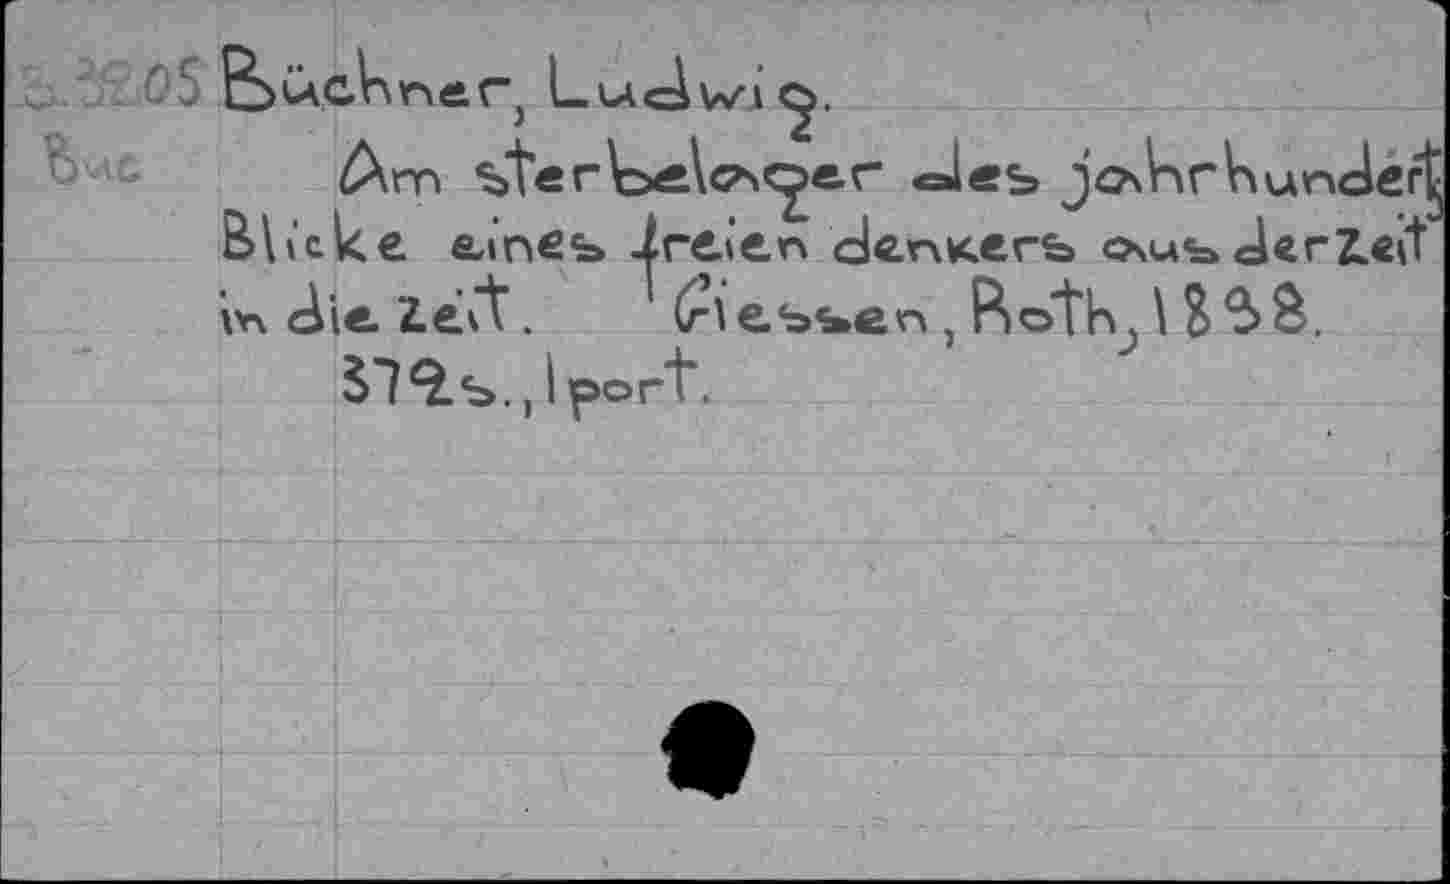 Büchner, Ludwig.
Buc Am sterbelager des jahrhundert;
Blicke eines freien denkers aus der Zeit
in die Zeit. Giessen, Roth, 1898.
372s., 1 port.